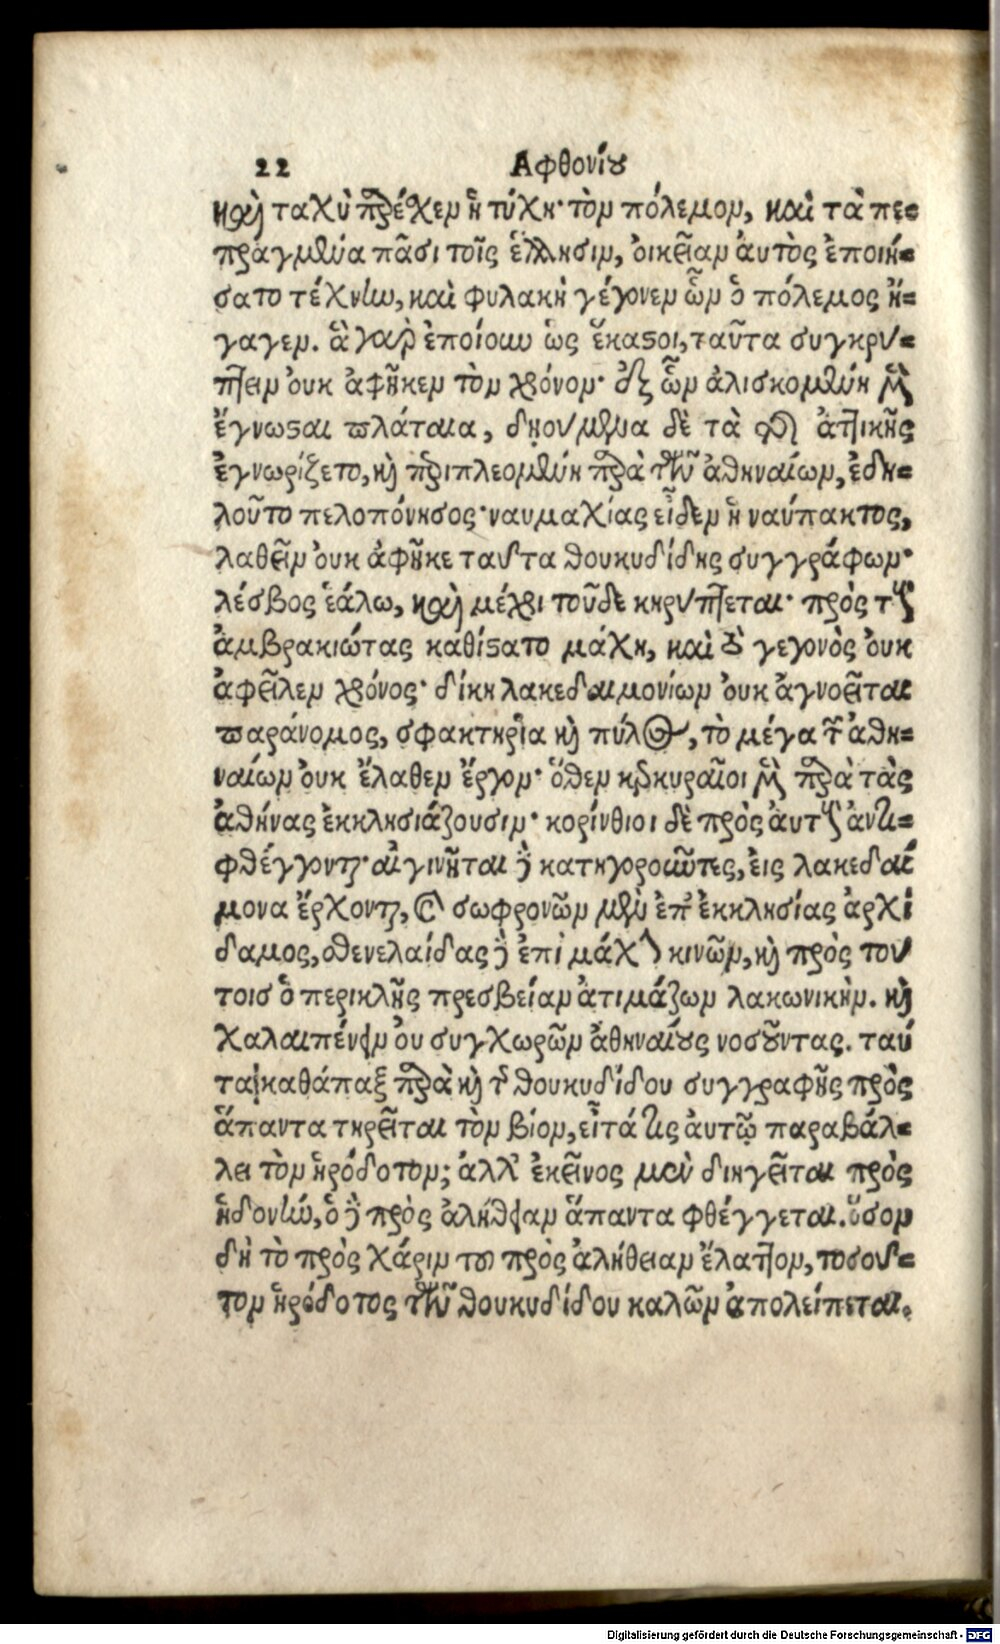 22 Αφθονίου
καὶ ταχὺ παρέχεν ἡ τύχη· τὸν πόλεμον, καὶ τὰ πε-
πραγμένα πᾶσι τοῖς ἕλλησιν, οἰκεῖαν ἀυτὸς ἐποιή-
σατο τέχνην, καὶ φυλακὴ γέγονεν ὧν ὁ πόλεμος ἤ-
γαγεν. ἃ γαρ ἐποίουν ὡς ἕκαστοι, ταῦτα συγκρύ-
πτειν ὀυκ ἀφῆκεν τὸν χρόνον· ἐξ ὧν ἁλισκομένη μὲν
ἔγνωσται πλάταια, δηουμενα δὲ τὰ τῆς ἀττικῆς
ἐγνωρίζετο, καὶ περιπλεομένη παρὰ τῶν ἀθηναίων, ἐδη-
λοῦτο πελοπόνησος· ναυμαχίας εἶδεν ἡ ναύπακτος,
λαθεῖν ὀυκ ἀφῆκε ταυτα θουκυδίδης συγγράφων·
λέσβος ἑάλω, καὶ μέχρι τοῦδε κηρύττεται· πρὸς τοὺς
ἀμβρακιώτας καθίστατο μάχη, καὶ τὸ γεγονὸς ὀυκ
ἀφεῖλεν χρόνος· δίκη λακεδαιμονίων ὀυκ ἀγνοεῖται
παράνομος, σφακτηρία καὶ πύλος, τὸ μέγα τῶν ἀθη-
ναίων ὀυκ ἔλαθεν ἔργον· ὅθεν κερκυραῖοι μὲν παρὰ τὰς
ἀθήνας ἐκκλησιάζουσιν· κορίνθιοι δὲ πρὸς ἀυτοὺς ἀντι-
φθέγγονται· αἰγινῆται δὲ κατηγοροῦντες, ἐις λακεδαί
μονα ἔρχονται, καὶ σωφρονῶν μὲν ἐπ' ἐκκλησίας ἀρχί
δαμος, σθενελαίδας δὲ ἐπὶ μάχην κινῶν, καὶ πρὸς του
τοισ ὁ περικλῆς πρεσβείαν ἀτιμάζων λακωνικὴν. καὶ
χαλαιπένειν ὀυ συγχωρῶν ἀθηναίους νοσοῦντας. ταύ
τα καθάπαξ παρὰ καὶ τῆς θουκυδίδου συγγραφῆς πρὸς
ἅπαντα τηρεῖται τὸν βίον, εἶτά τις ἀυτῷ παραβάλ-
λει τὸν ἡρόδοτον; ἀλλ' ἐκεῖνος μεν διηγεῖται πρὸς
ἡδονήν, ὁ δὲ πρὸς ἀλήθειαν ἅπαντα φθέγγεται. ὅσον
δὴ τὸ πρὸς χάριν του πρὸς ἀλήθειαν ἔλαττον, τοσου-
τον ἡρόδοτος τῶν θουκυδίδου καλῶν ἀπολείπεται.
Digitalisierung gefördert durch die Deutsche Forschungsgemeinschaft - DFG